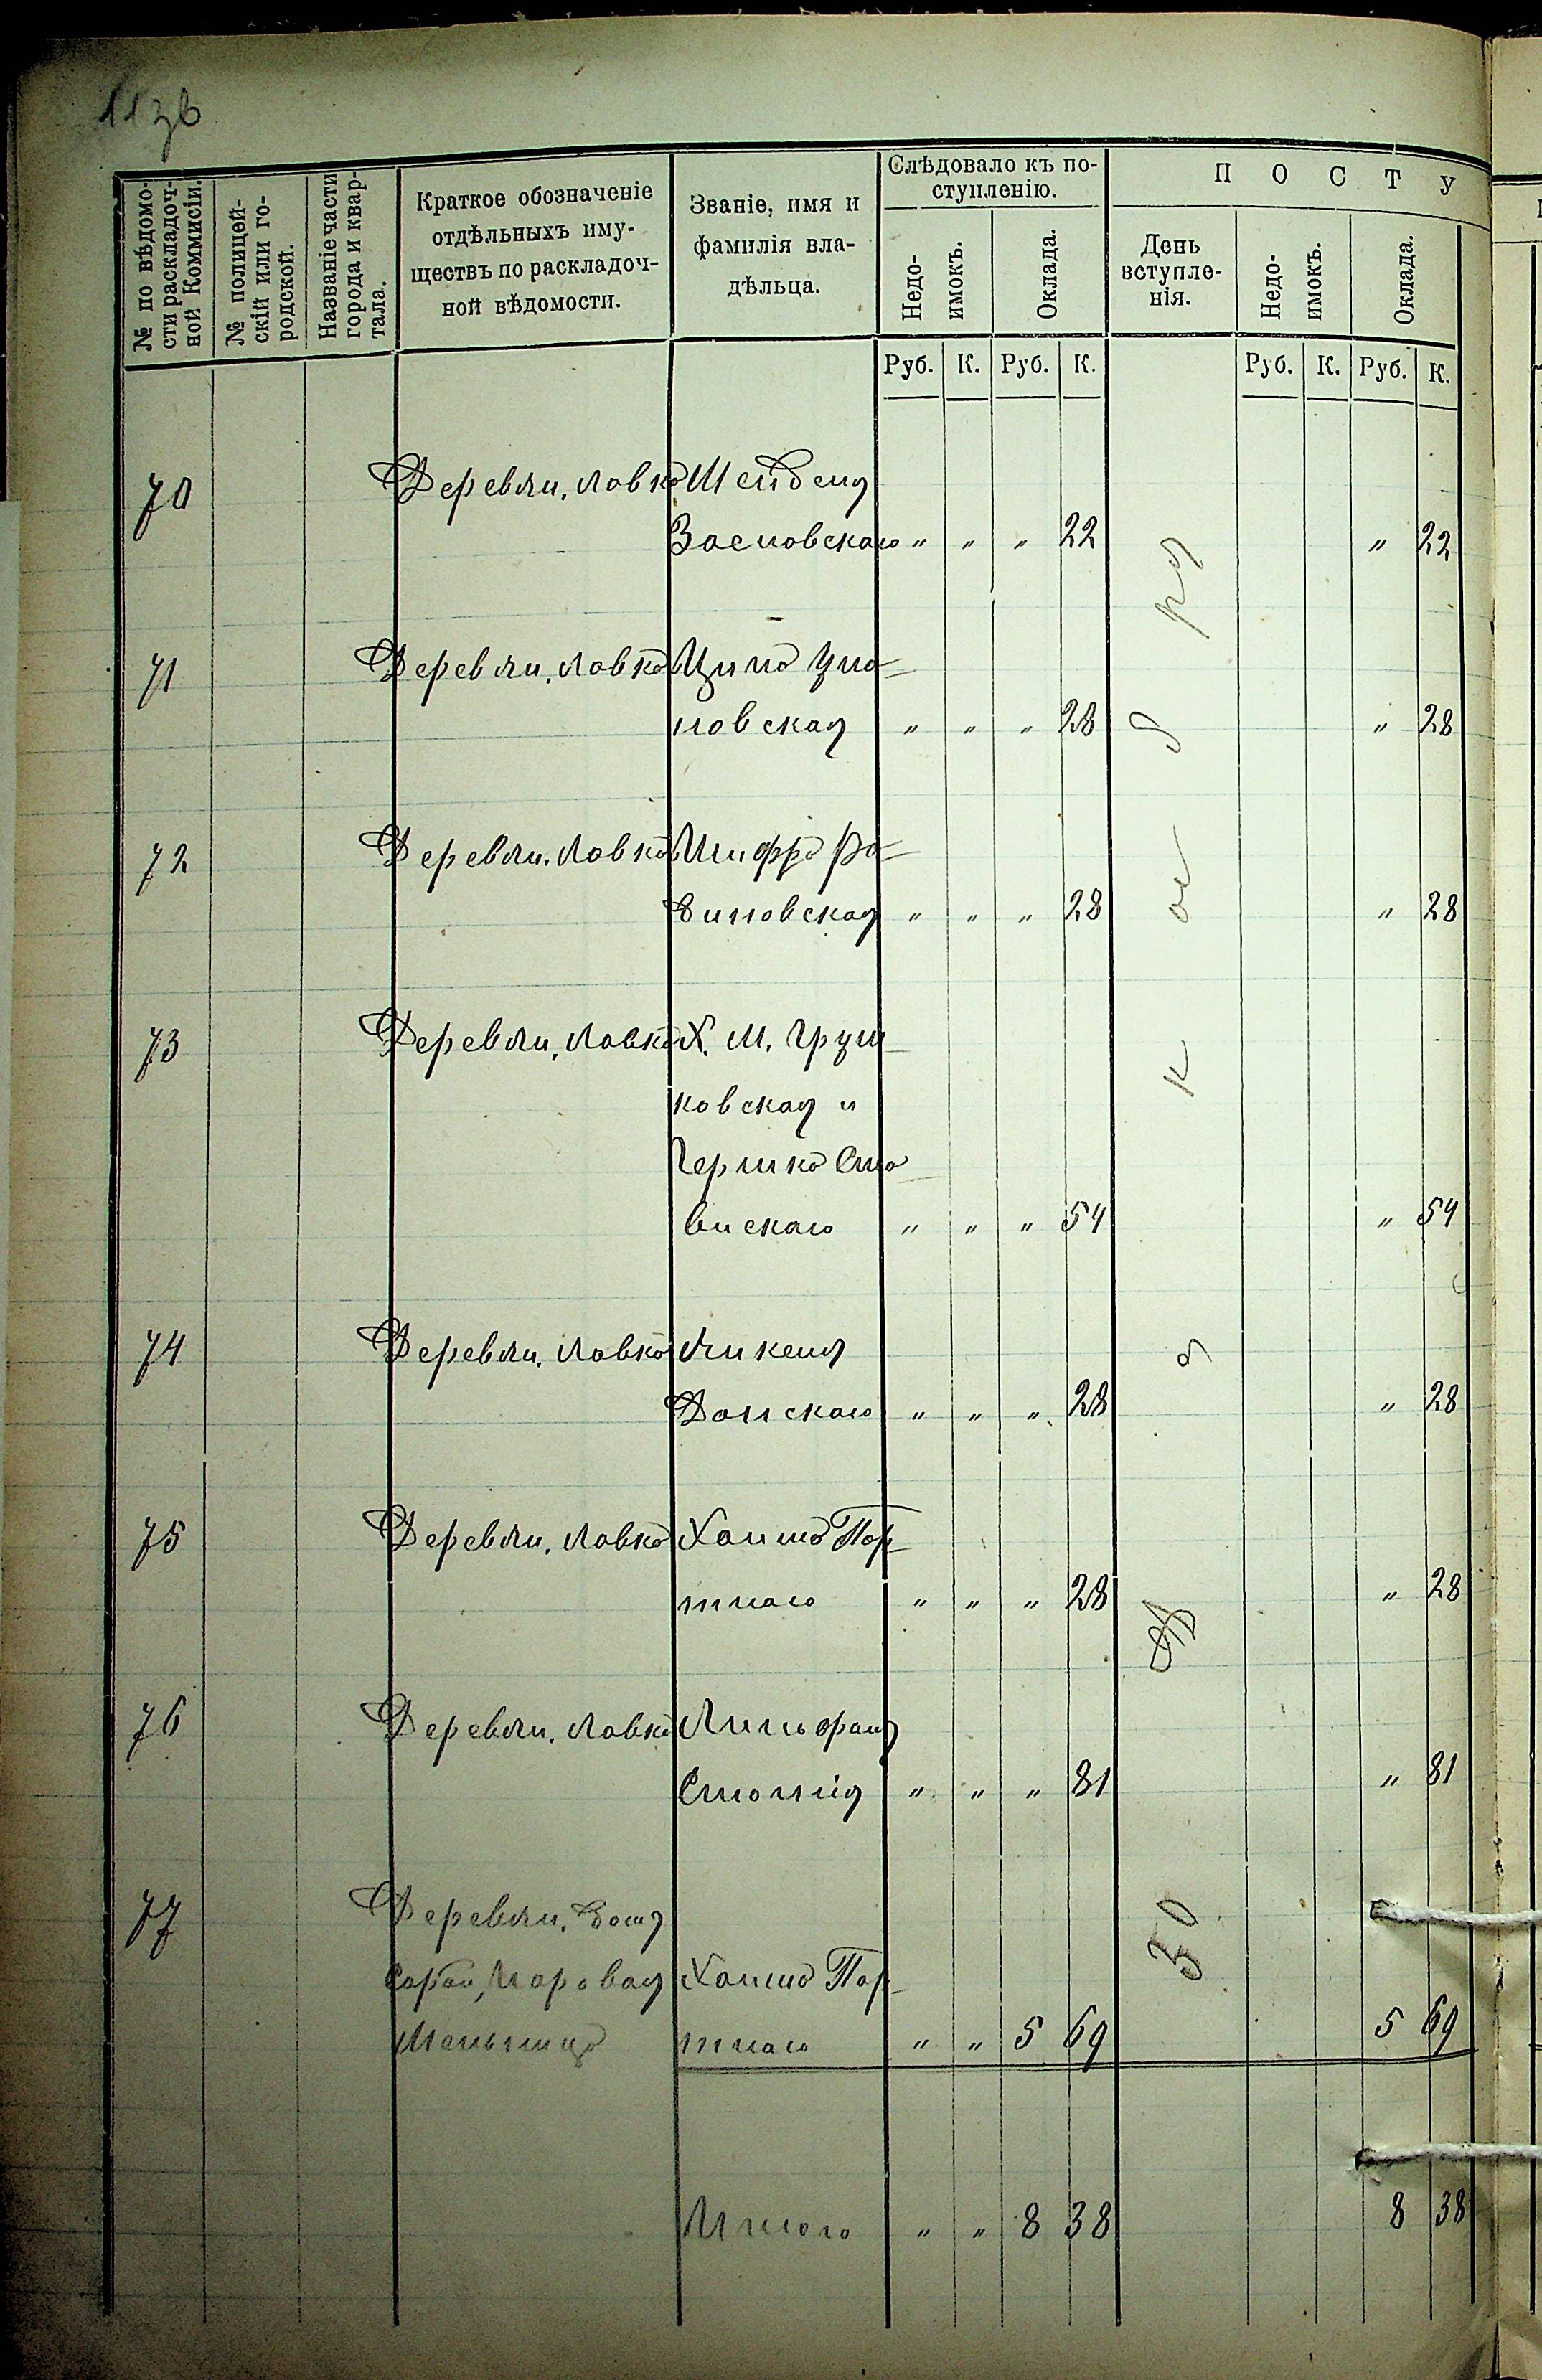 113б
№ по вѣдомо-
сти раскладоч-
ной Коммисіи.
№ полицей-
скій или го-
родской.
Названіе части
города и квар-
тала.
Краткое обозначеніе
отдѣльныхъ иму-
ществъ по раскладоч-
ной вѣдомости.
Званіе, имя и
фамилія вла-
дѣльца.
Слѣдовало къ по-
ступленію.
Недо-
имокъ.
Оклада.
П О С Т У
День
вступле-
нія.
Недо-
имокъ.
Оклада.
Руб. К. Руб. К. Руб. К. Руб. К.
70 Деревян. лавка
" " " 22 " 22
71 Деревян. лавка
новская " " " 28 " 28
72 Деревян. лавка Шифра Ра-
биновская " " " 28 " 28
73 Деревян. лавка Х. М. Груш-
ковская и
Гершко
" " " 54 " 54
74 Деревян. лавка
Данскаго " " " 28 " 28
75 Деревян. лавка Хаима Пор-
тнаго " " " 28 " 28
76 Деревян. лавка
" " " 81 " 81
77 Деревян. домъ
сарай, паровая Хаима Пор-
мельница тнаго " " 5 69 5 69
Итого " " 8 38 8 38